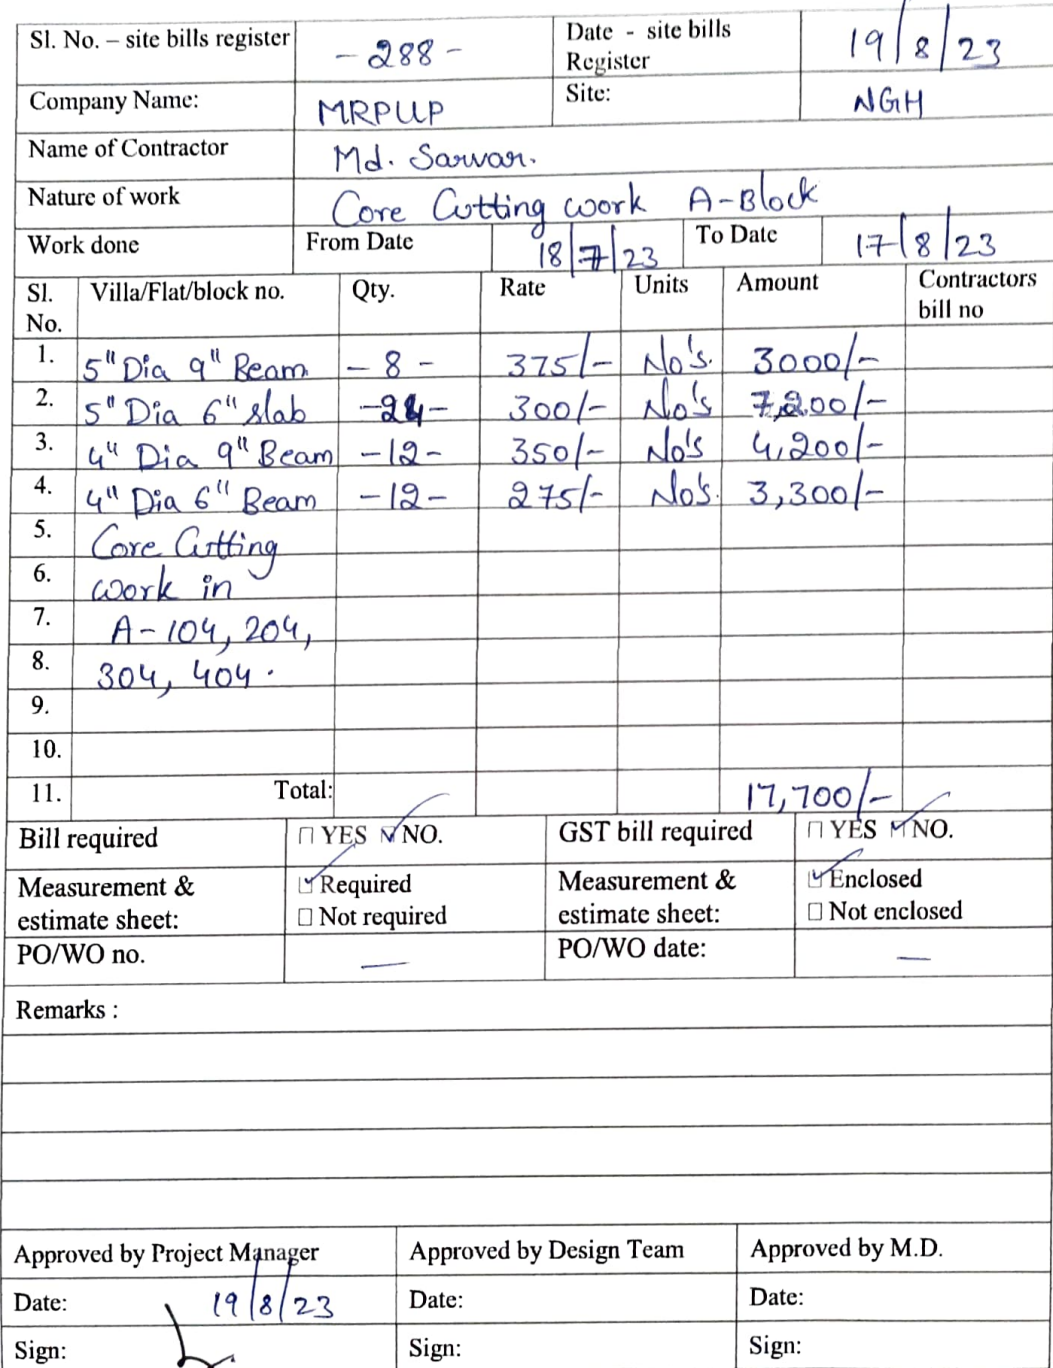 Sl. No. – site bills register -288- Date - site bills Register 19/8/23
Company Name: MRPLLP Site: NGH
Name of Contractor Md. Sarvar.
Nature of work Core Cutting work A-Block
Work done From Date 18/7/23 To Date 17/8/23
Sl. No. Villa/Flat/block no. Qty. Rate Units Amount Contractors bill no
1. 5" Dia 9" Beam - 8 - 375/- No's. 3000/-
2. 5" Dia 6" slab -24- 300/- No's 7,200/-
3. 4" Dia 9" Beam -12- 350/- No's 4,200/-
4. 4" Dia 6" Beam -12- 275/- No's. 3,300/-
5. Core Cutting
6. work in
7. A-104, 204,
8. 304, 404.
9.
10.
11. Total: 17,700/-
Bill required YES NO. GST bill required YES NO.
Measurement & estimate sheet: Required Not required Measurement & estimate sheet: Enclosed Not enclosed
PO/WO no. — PO/WO date: —
Remarks :
Approved by Project Manager Approved by Design Team Approved by M.D.
Date: 19/8/23 Date: Date:
Sign: Sign: Sign: